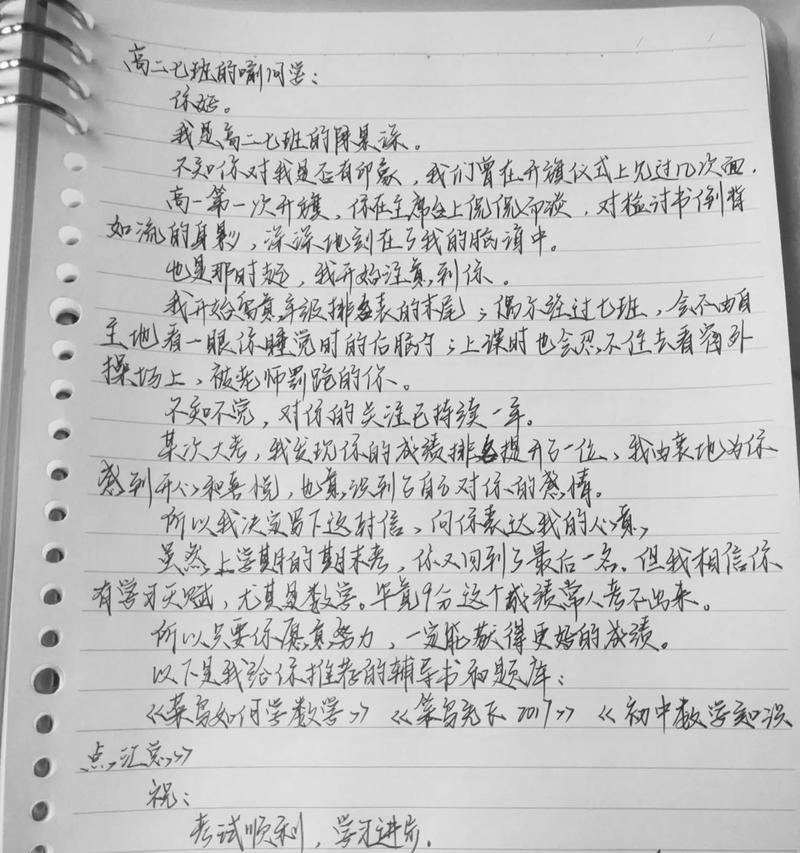 高二七班的喻同学：
你好。
我是高二七班的周果深。
不知你对我是否有印象，我们曾在升旗仪式上见过几次面，
高一第一次升旗，你在主席台上侃侃而谈，对检讨书倒背
如流的身影，深深地刻在了我的脑海中。
也是那时起，我开始注意到你。
我开始留意年级排名表的末尾；偶尔经过七班，会不由自
主地看一眼你睡觉时的后脑勺；上课时也会忍不住去看窗外
操场上，被老师罚跑的你。
不知不觉，对你的关注已持续一年。
某次大考，我发现你的成绩排名提升了一位，我由衷地为你
感到开心和喜悦，也意识到了自己对你的感情。
所以我决定写下这封信，向你表达我的心意，
虽然上学期的期末考，你又回到了最后一名。但我相信你
有学习天赋，尤其是数学。毕竟9分这个成绩常人考不出来。
所以只要你愿意努力，一定能获得更好的成绩。
以下是我给你推荐的辅导书和题库：
《菜鸟如何学数学》《笨鸟先飞2017》《初中数学知识
点汇总》
祝：
考试顺利，学习进步。